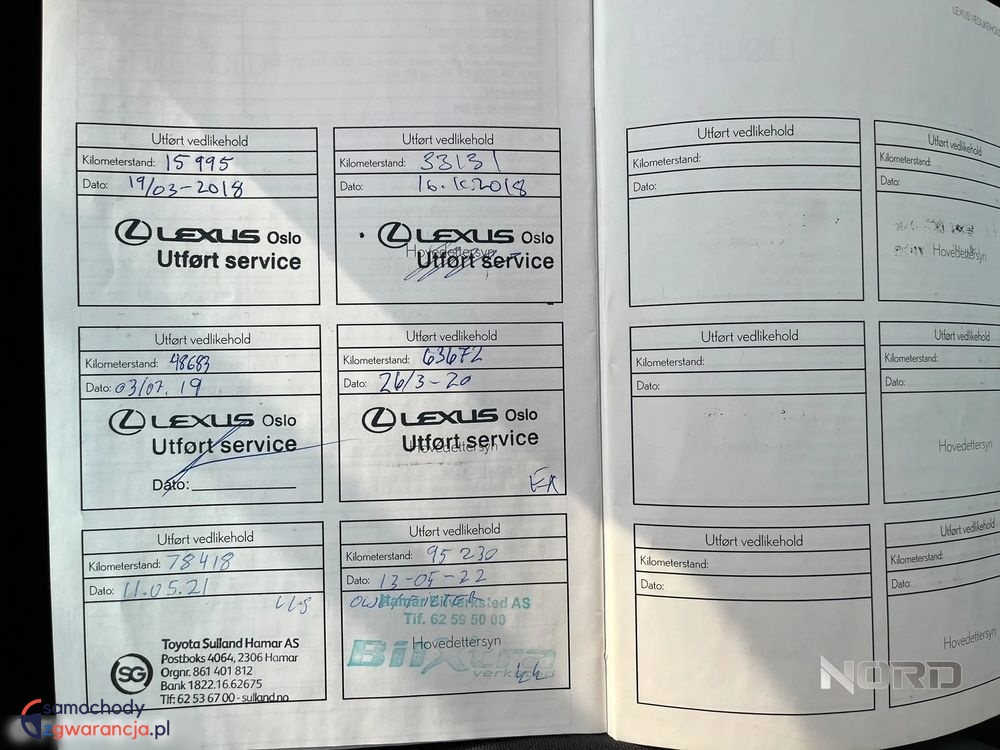 LEXUS VEDLIKEHOLD
Utført vedlikehold
Kilometerstand: 15 995
Dato: 19/03-2018
LEXUS Oslo
Utført service
Utført vedlikehold
Kilometerstand: 33131
Dato: 16.10.2018
LEXUS Oslo
Hovedettersyn
Utført service
Utført vedlikehold
Kilometerstand: 48683
Dato: 03/07.19
LEXUS Oslo
Utført service
Dato:
Utført vedlikehold
Kilometerstand: 63672
Dato: 26/3-20
LEXUS Oslo
Utført service
Hovedettersyn
Utført vedlikehold
Kilometerstand: 78418
Dato: 11.05.21
Toyota Sulland Hamar AS
Postboks 4064, 2306 Hamar
Orgnr. 861 401 812
Bank 1822.16.62675
Tlf: 62 53 67 00 - sulland.no
SG
Utført vedlikehold
Kilometerstand: 95 230
Dato: 13-05-22
Hamar Bilverksted AS
Tlf. 62 59 50 00
Hovedettersyn
BilXtra
verksted
Utført vedlikehold
Kilometerstand:
Dato:
Utført vedlikehold
Kilometerstand:
Dato:
Hovedettersyn
Utført vedlikehold
Kilometerstand:
Dato:
Utført vedlikehold
Kilometerstand:
Dato:
Hovedettersyn
Utført vedlikehold
Kilometerstand:
Dato:
Utført vedlikehold
Kilometerstand:
Dato:
Hovedettersyn
NORD
samochody
zgwarancja.pl